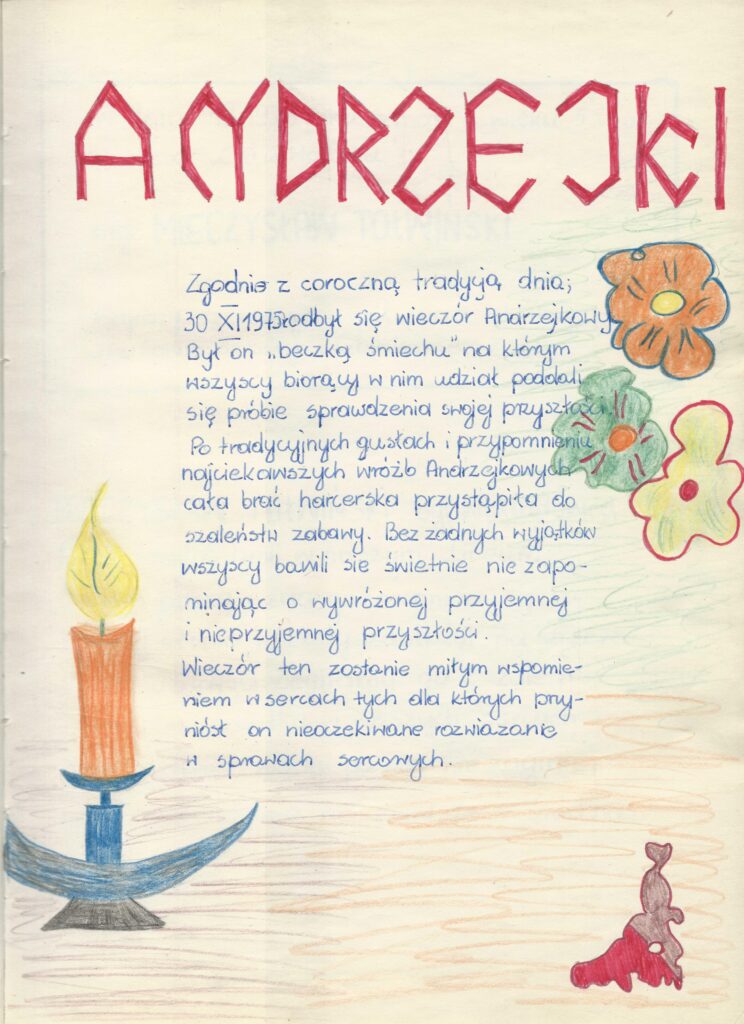 ANDRZEJKI
Zgodnie z coroczną tradycją dnia;
30 XI 1975r odbył się wieczór Andrzejkowy
Był on „beczką śmiechu" na którym
wszyscy biorący w nim udział poddali
się próbie sprawdzenia swojej przyszłości.
Po tradycyjnych gusłach i przypomnieniu
najciekawszych wróżb Andrzejkowych
cała brać harcerska przystąpiła do
szaleństw zabawy. Bez żadnych wyjątków
wszyscy bawili sie świetnie nie zapo-
minając o wywróżonej przyjemnej
i nieprzyjemnej przyszłości.
Wieczór ten zostanie miłym wspomie-
niem w sercach tych dla których przy-
niósł on nieoczekiwane rozwiazanie
w sprawach sercowych.
MIECZYSŁAW TOŁWIŃSKI